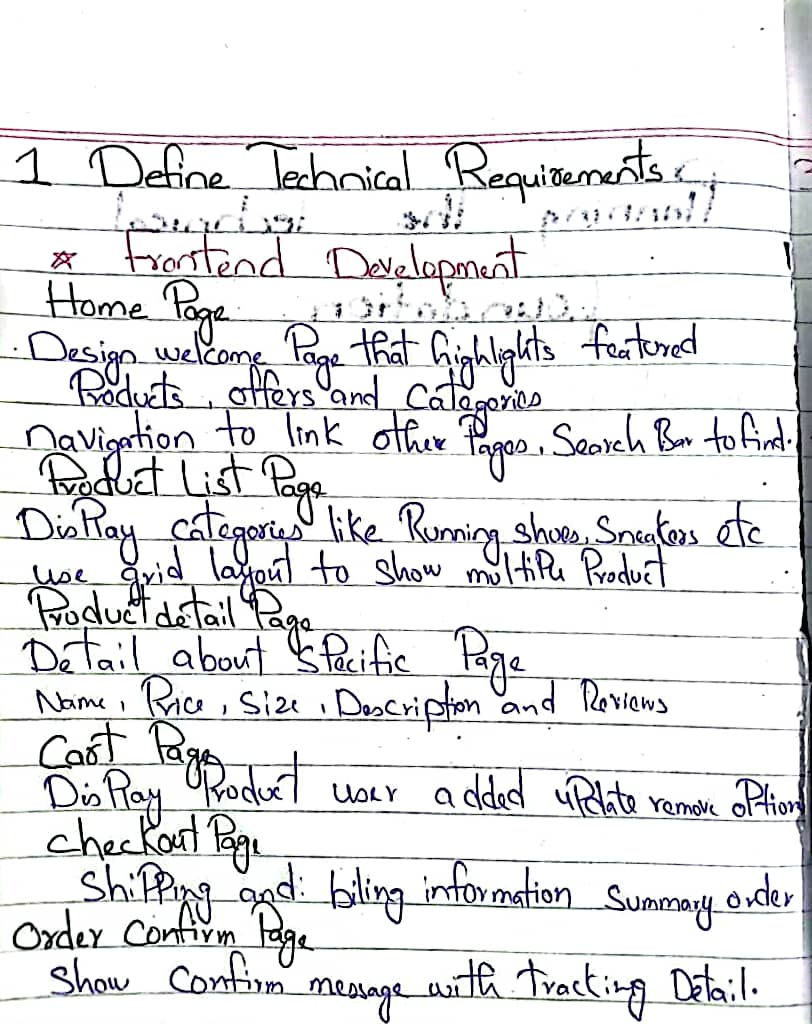 1 Define Technical Requirements
☆ Frontend Development
Home Page
. Design welcome Page that highlights featured
Products, offers and Categories
navigation to link other Pages, Search Bar to find.
Product List Page
Display categories like Running shoes, Sneakers etc
use grid layout to show multiple Product
Product detail Page
Detail about specific Page
Name, Price, Size, Description and Reviews
Cart Page
Display Product user added update remove option
checkout Page
Shipping and: biling information Summary order
Order Confirm Page
Show Confirm message with tracking Detail.